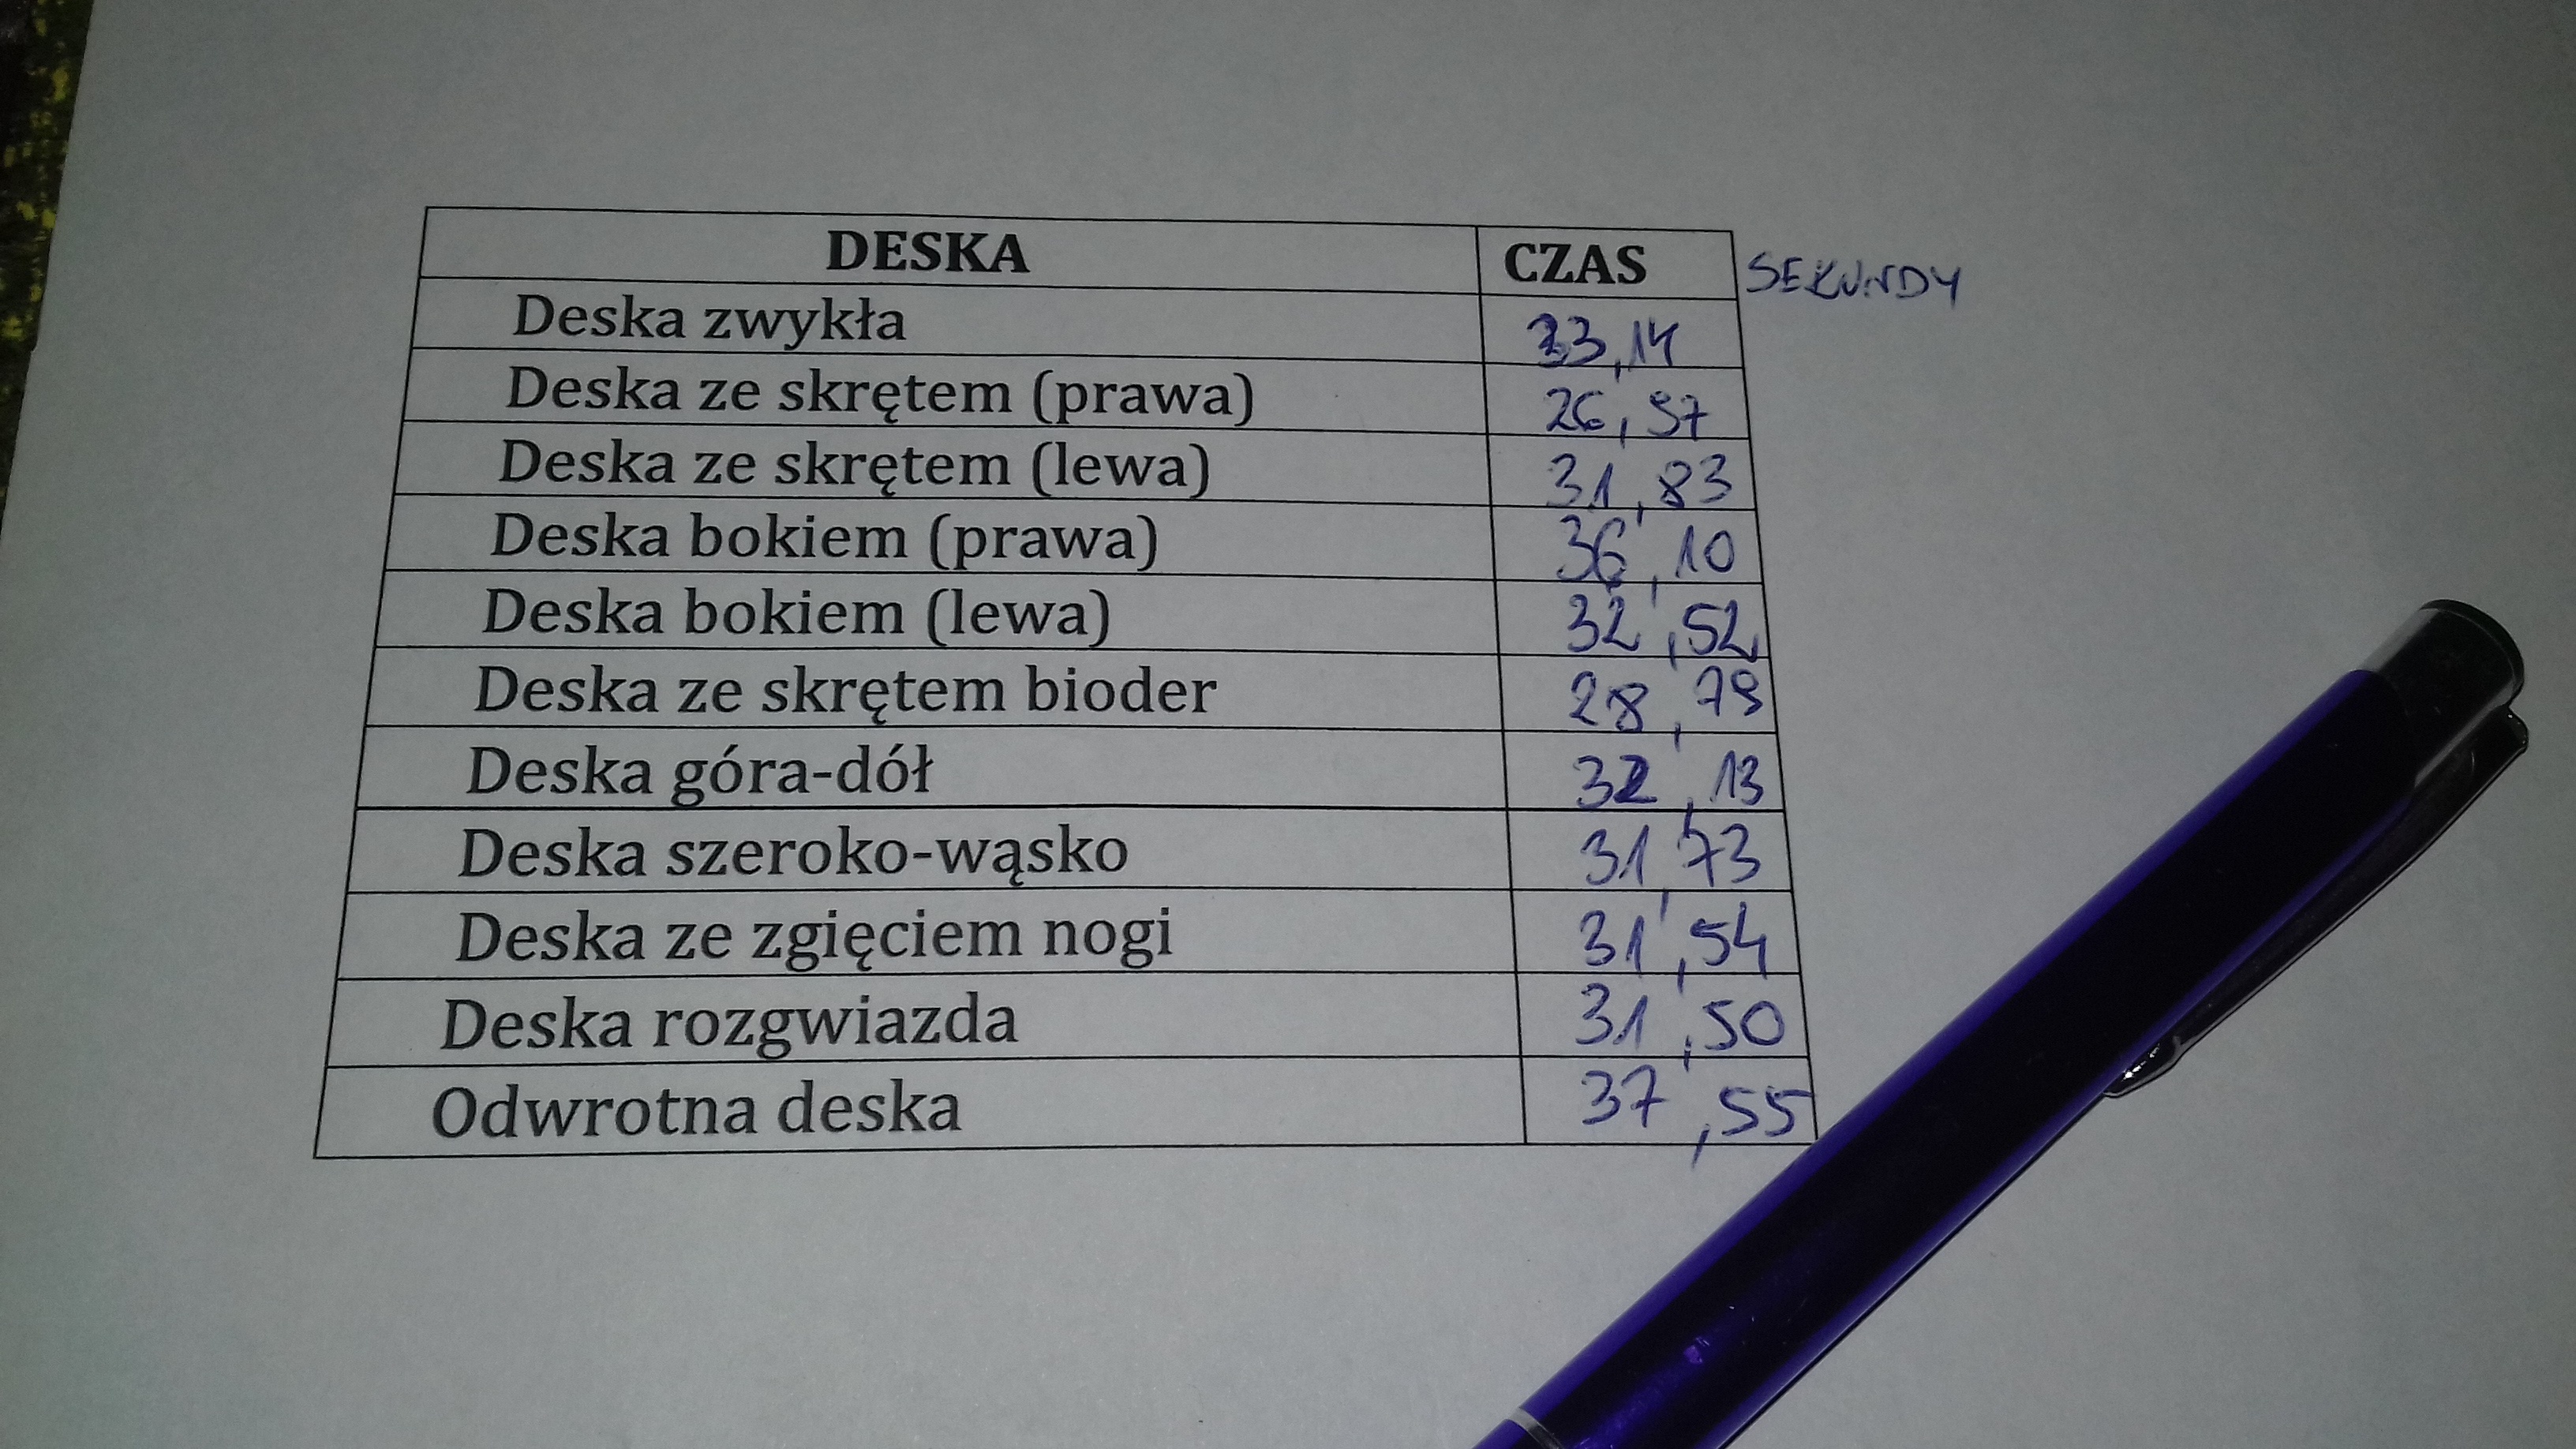 DESKA CZAS SEKUNDY
Deska zwykła 33,14
Deska ze skrętem (prawa) 26,97
Deska ze skrętem (lewa) 31,83
Deska bokiem (prawa) 36,10
Deska bokiem (lewa) 32,52
Deska ze skrętem bioder 28,79
Deska góra-dół 32,13
Deska szeroko-wąsko 31,73
Deska ze zgięciem nogi 31,54
Deska rozgwiazda 31,50
Odwrotna deska 37,55